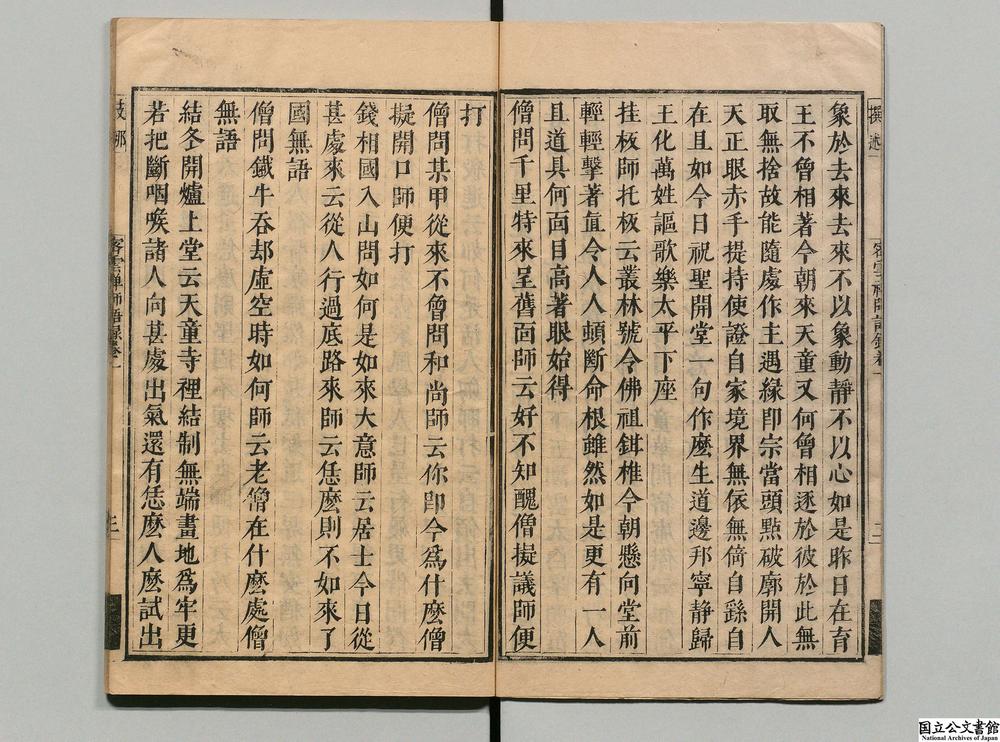 象於去來去來不以象動靜不以心如是昨日在育
王不曾相著今朝來天童又何曾相逐於彼於此無
取無捨故能隨處作主遇緣卽宗當頭點破廓開人
天正眼赤手提持使證自家境界無依無倚自繇自
在且如今日祝聖開堂一句作麽生道邊邦寧靜歸
王化萬姓謳歌樂太平下座
挂板師托板云叢林號令佛祖鉗椎今朝懸向堂前
輕輕擊著直令人人頓斷命根雖然如是更有一人
且道具何面目高著眼始得
僧問千里特來呈舊面師云好不知醜僧擬議師便
打
僧問某甲從來不曾問和尚師云你卽今爲什麽僧
擬開口師便打
錢相國入山問如何是如來大意師云居士今日從
甚處來云從人行過底路來師云恁麽則不如來了
國無語
僧問鐵牛吞却虛空時如何師云老僧在什麽處僧
無語
結冬開爐上堂云天童寺裡結制無端畫地爲牢更
若把斷咽喉諸人向甚處出氣還有恁麽人麽試出
撰述
密雲禪師語錄卷
三
密雲禪師語錄卷
三
国立公文書館
National Archives of Japan